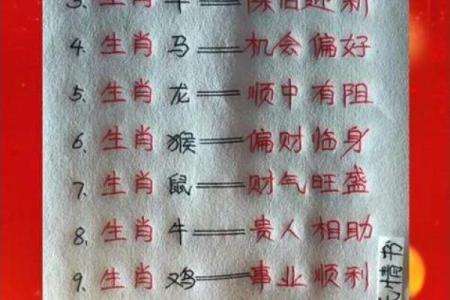 4. 生肖 马——机会偏好
5. 生肖 龙——顺中有阻
6. 生肖 猴——偏财临身
7. 生肖 鼠——财气旺盛
8. 生肖 牛——贵人相助
9. 生肖 鸡——事业顺利
情书